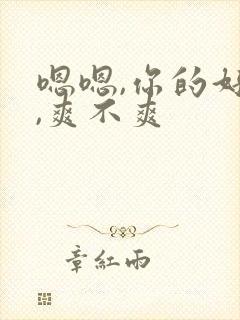 嗯嗯,你的好
,爽不爽
章紅雨